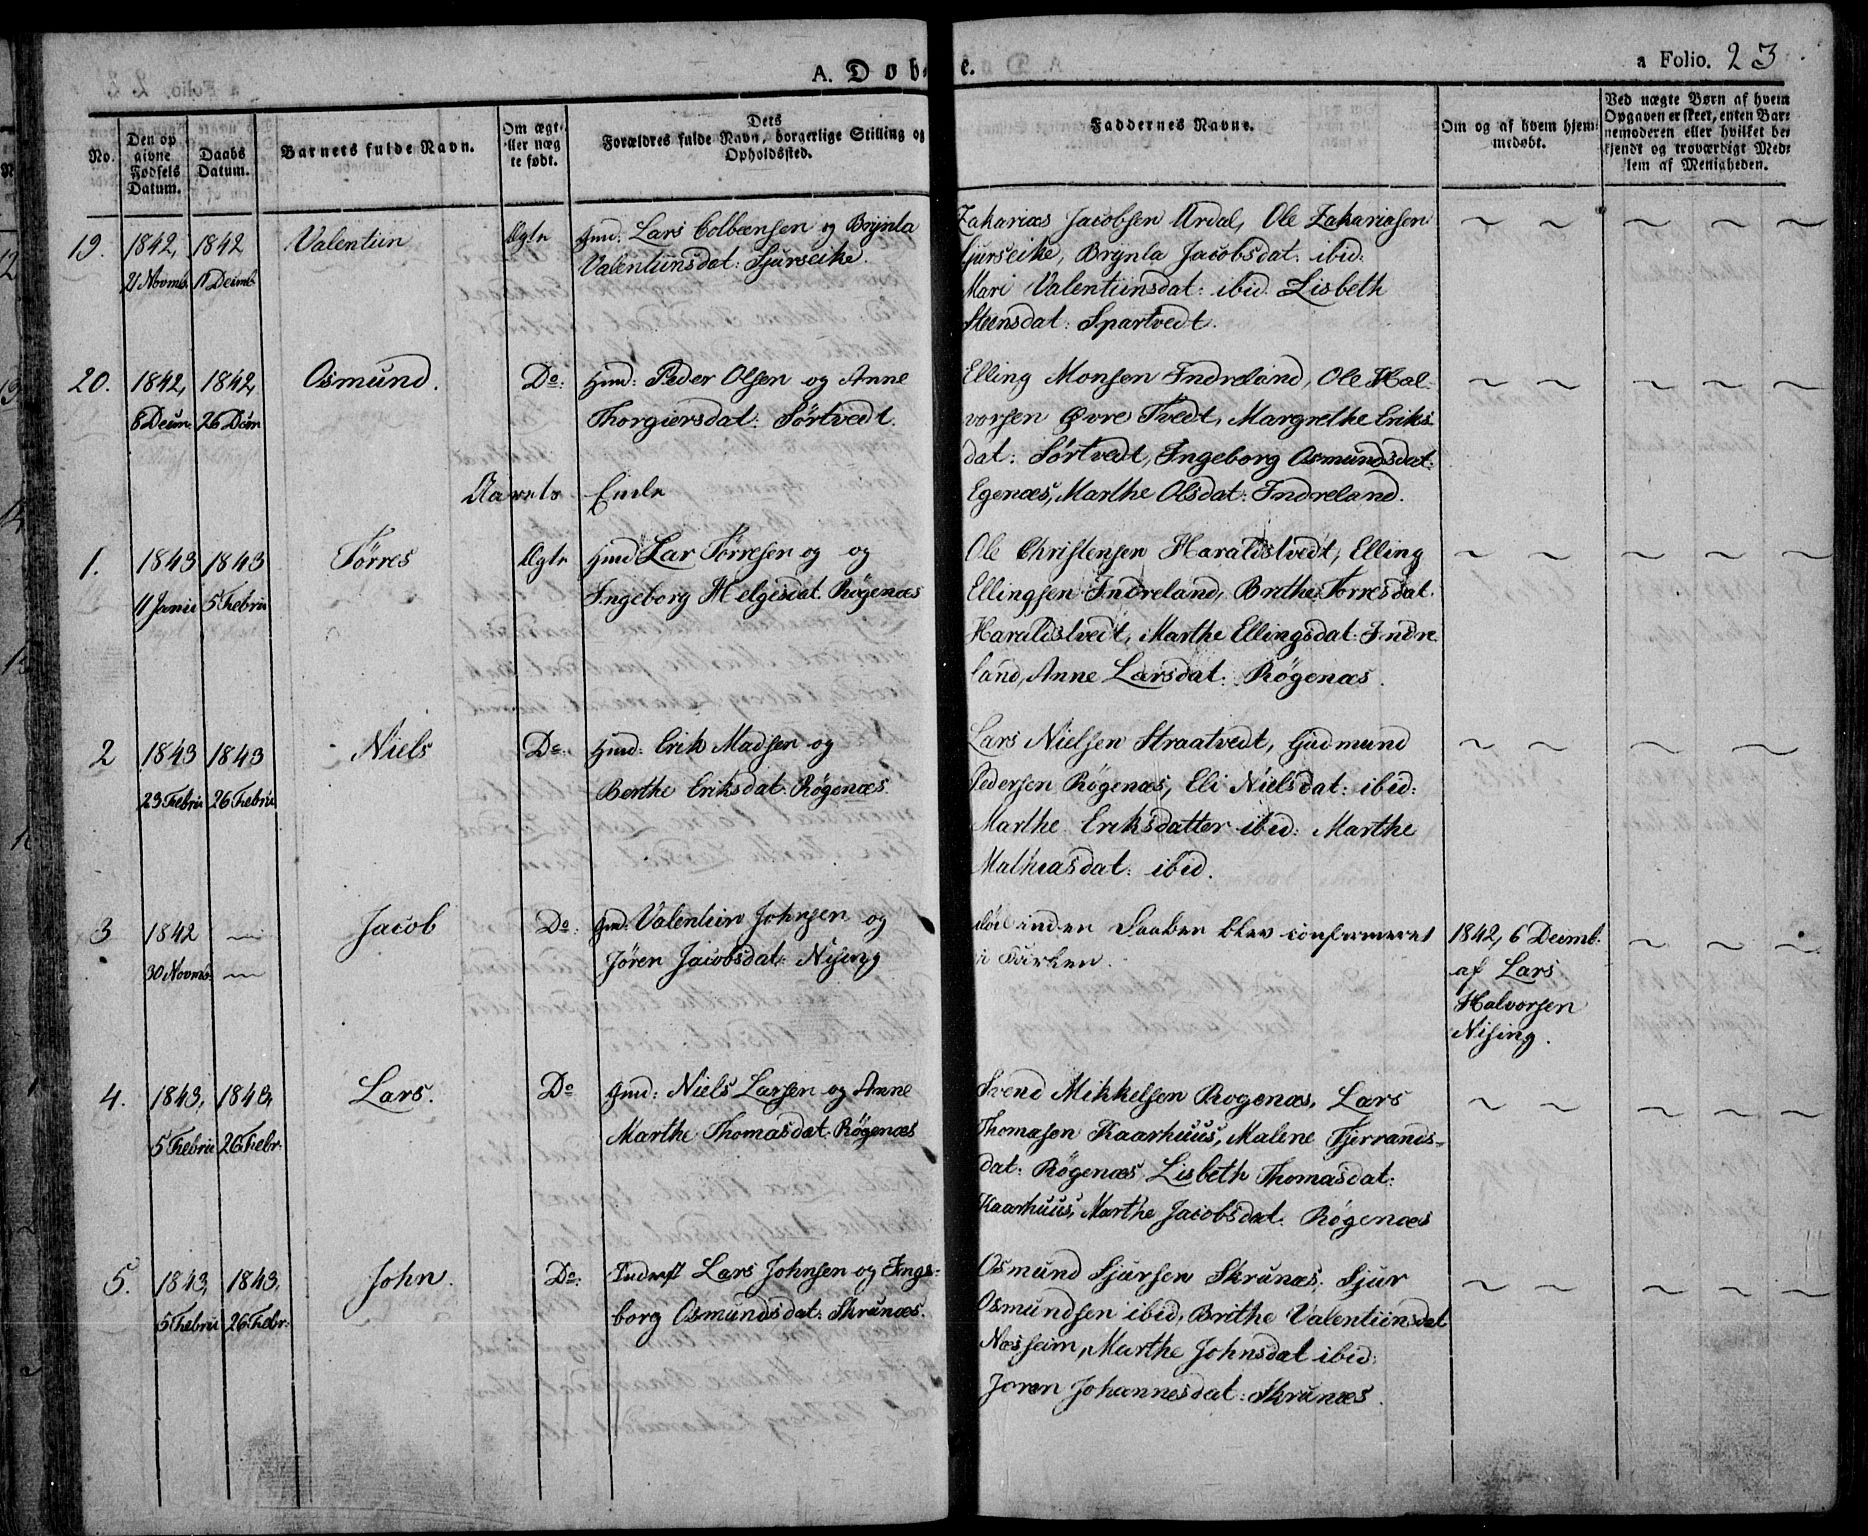 A. Døbte.
a Folio. 23
No.
Den opgivne Fødsels Datum.
Daabs Datum.
Barnets fulde Navn.
Om ægte eller uægte født.
Dets Forældres fulde Navn, borgerlige Stilling og Opholdssted.
Faddernes Navne.
Om og af hvem hjemmedøbt.
Ved uægte Børn af hvem Opgaven er skeet, enten Barnemoderen eller hvilket bekjendt og troværdigt Medlem af Menigheden.
19. 1842, 1842 Valentin Ægte Gmd: Lars Colbeensen og Brynla
21 Novmb. 11 Decmb Valentinsdat: Sjurseike.
Zakarias Jacobsen Urdal, Ole Zakariasen
Sjurseike, Brynla Jacobsdat: ibid:
Mari Valentiinsdat: ibid. Lisbeth
Steensdat: Spartvedt.
20. 1842, 1842, Osmund. Do: Gmd: Peder Olsen og Anne
8 Decm. 26 Decm Thorgiersdat: Sørtvedt.
Elling Monsen Indreland, Ole Hal-
vorsen Øvre Tvedt, Margrethe Eriks-
dat: Sørtvedt, Ingeborg Osmundsdat:
Aarets Ende
Egenæs, Marthe Olsdat: Indreland.
1. 1843 1843 Tørres Ægte Gmd Lar Tørresen og og
11 Janu 5 Febru Ingeborg Helgesdat. Røgenæs
Ole Christensen Haraldstvedt, Elling
Ellingsen Indreland, Brithe Tørresdat.
Haraldstvedt, Marthe Ellingsdat: Indre
land, Anne Larsdat: Røgenæs.
2 1843 1843 Niels Do: Gmd: Erik Madsen og
23 Febru 26 Febru Berthe Eriksdat: Røgenæs
Lars Nielsen Straatvedt, Gudmund
Pedersen Røgenæs, Eli Nielsdat: ibid:
Marthe Eriksdatter ibid: Marthe
Mathiasdat: ibid.
3 1842 Jacob Do: Gmd: Valentiin Johnsen og
30 Novmb. Jøren Jacobsdat: Nising
død inden Daaben blev confirmeret
i Kirken.
1842, 6 Decmb.
af Lars
Halvorsen
Nising.
4. 1843, 1843, Lars. Do Gmd: Niels Larsen og Anne
5 Febru 26 Febr. Marthe Thomasdat: Røgenæs
Svend Mikkelsen Rogenæs, Lars
Thomasen Kaarhuus, Malene Tjerrands-
dat: Røgenæs, Lisbeth Thomasdat:
Kaarhuus, Marthe Jacobsdat: Røgenæs
5. 1843, 1843, John. Do: Inderst Lars Johnsen og Inge-
5 Febru 26 Febr. borg Osmundsdat: Skrunæs.
Osmund Sjursen Skrunæs, Sjur
Osmundsen ibid, Brithe Valentiinsdat
Næsheim, Marthe Johnsdat ibid:
Joren Johannesdat: Skrunæs.